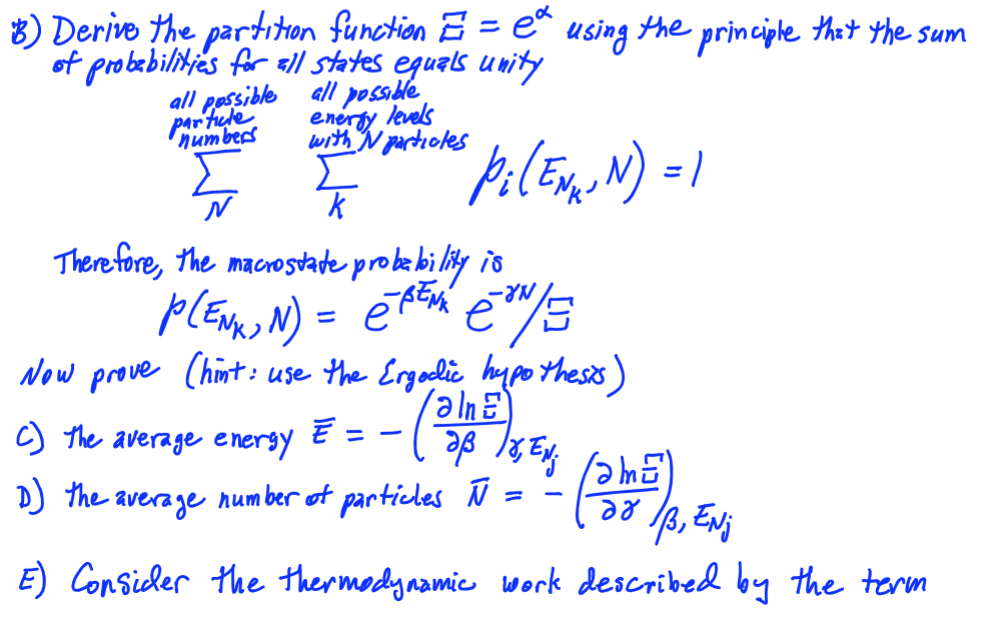 B) Derive the partition function Ξ = e^α using the principle that the sum
of probabilities for all states equals unity
all possible particle numbers
all possible energy levels with N particles
∑_N ∑_K p_i(E_{N_K}, N) = 1
Therefore, the macrostate probability is
p(E_{N_K}, N) = e^{-βE_{N_K}} e^{-γN}/Ξ
Now prove (hint: use the Ergodic hypothesis)
C) the average energy Ē = -(∂ ln Ξ/∂β)_{γ, E_{N_j}}
D) the average number of particles N̄ = -(∂ ln Ξ/∂γ)_{β, E_{N_j}}
E) Consider the thermodynamic work described by the term